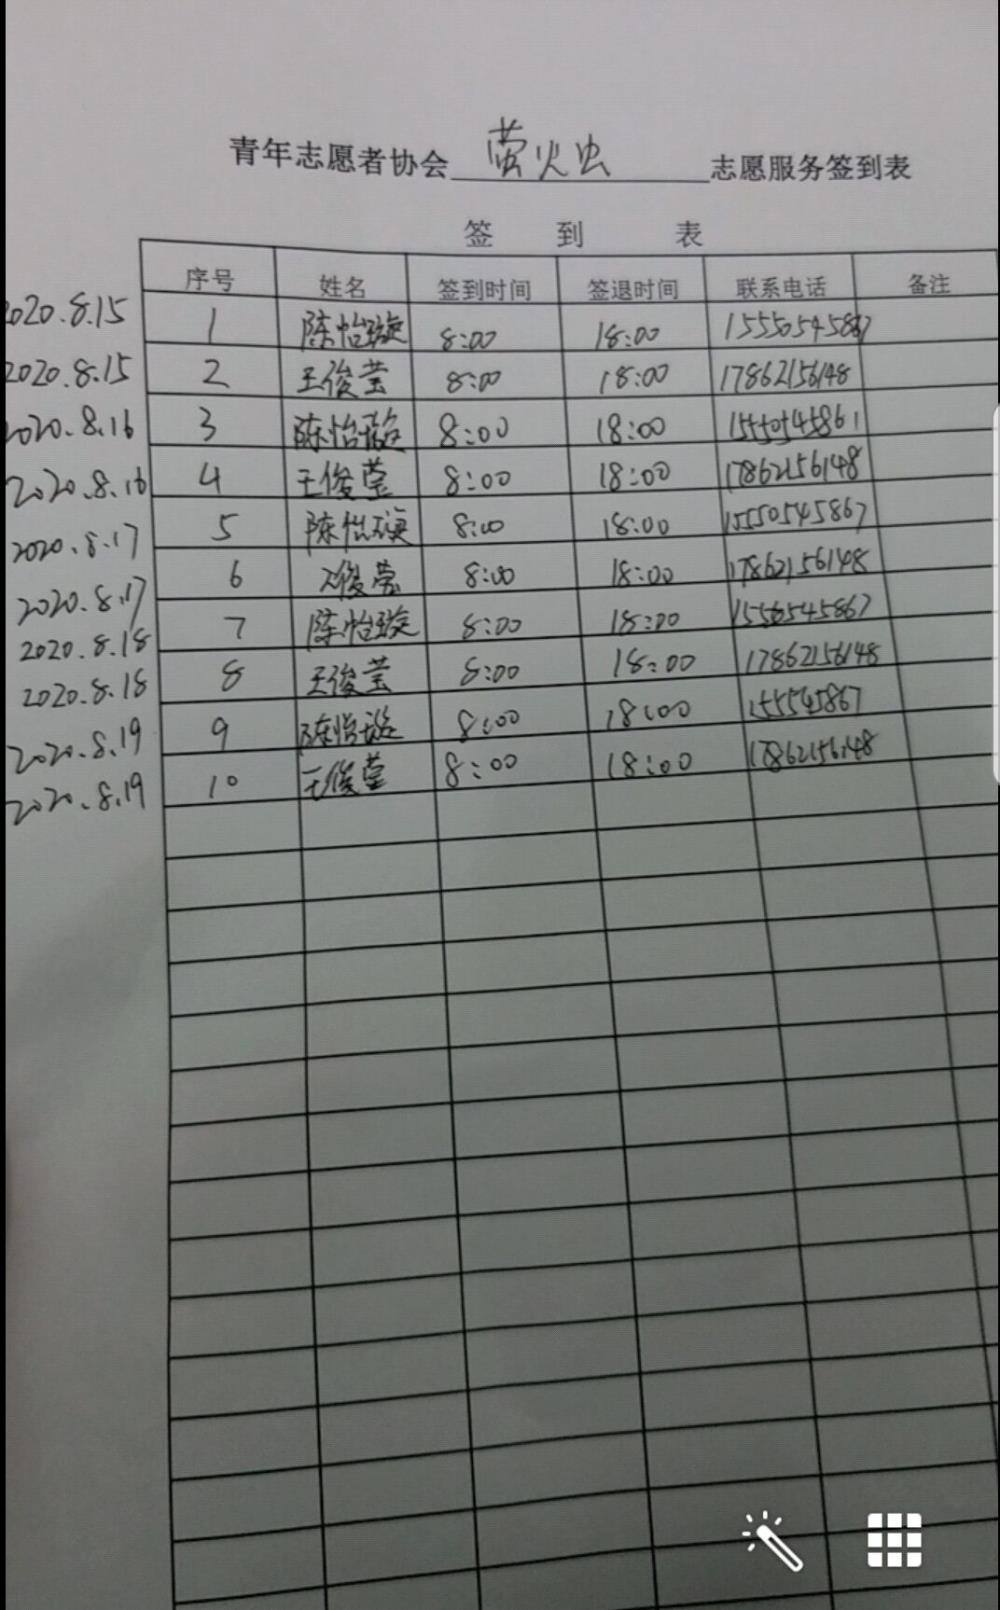 青年志愿者协会 萤火虫 志愿服务签到表
签到表
序号 姓名 签到时间 签退时间 联系电话 备注
2020.8.15 1 陈怡璇 8:00 18:00 15550545867
2020.8.15 2 王俊莹 8:00 18:00 17862156148
2020.8.16 3 陈怡璇 8:00 18:00 15550545861
2020.8.16 4 王俊莹 8:00 18:00 17862156148
2020.8.17 5 陈怡璇 8:00 18:00 15550545867
2020.8.17 6 王俊莹 8:00 18:00 17862156148
2020.8.18 7 陈怡璇 8:00 18:00 15550545867
2020.8.18 8 王俊莹 8:00 18:00 17862156148
2020.8.19 9 陈怡璇 8:00 18:00 155545867
2020.8.19 10 王俊莹 8:00 18:00 17862156148